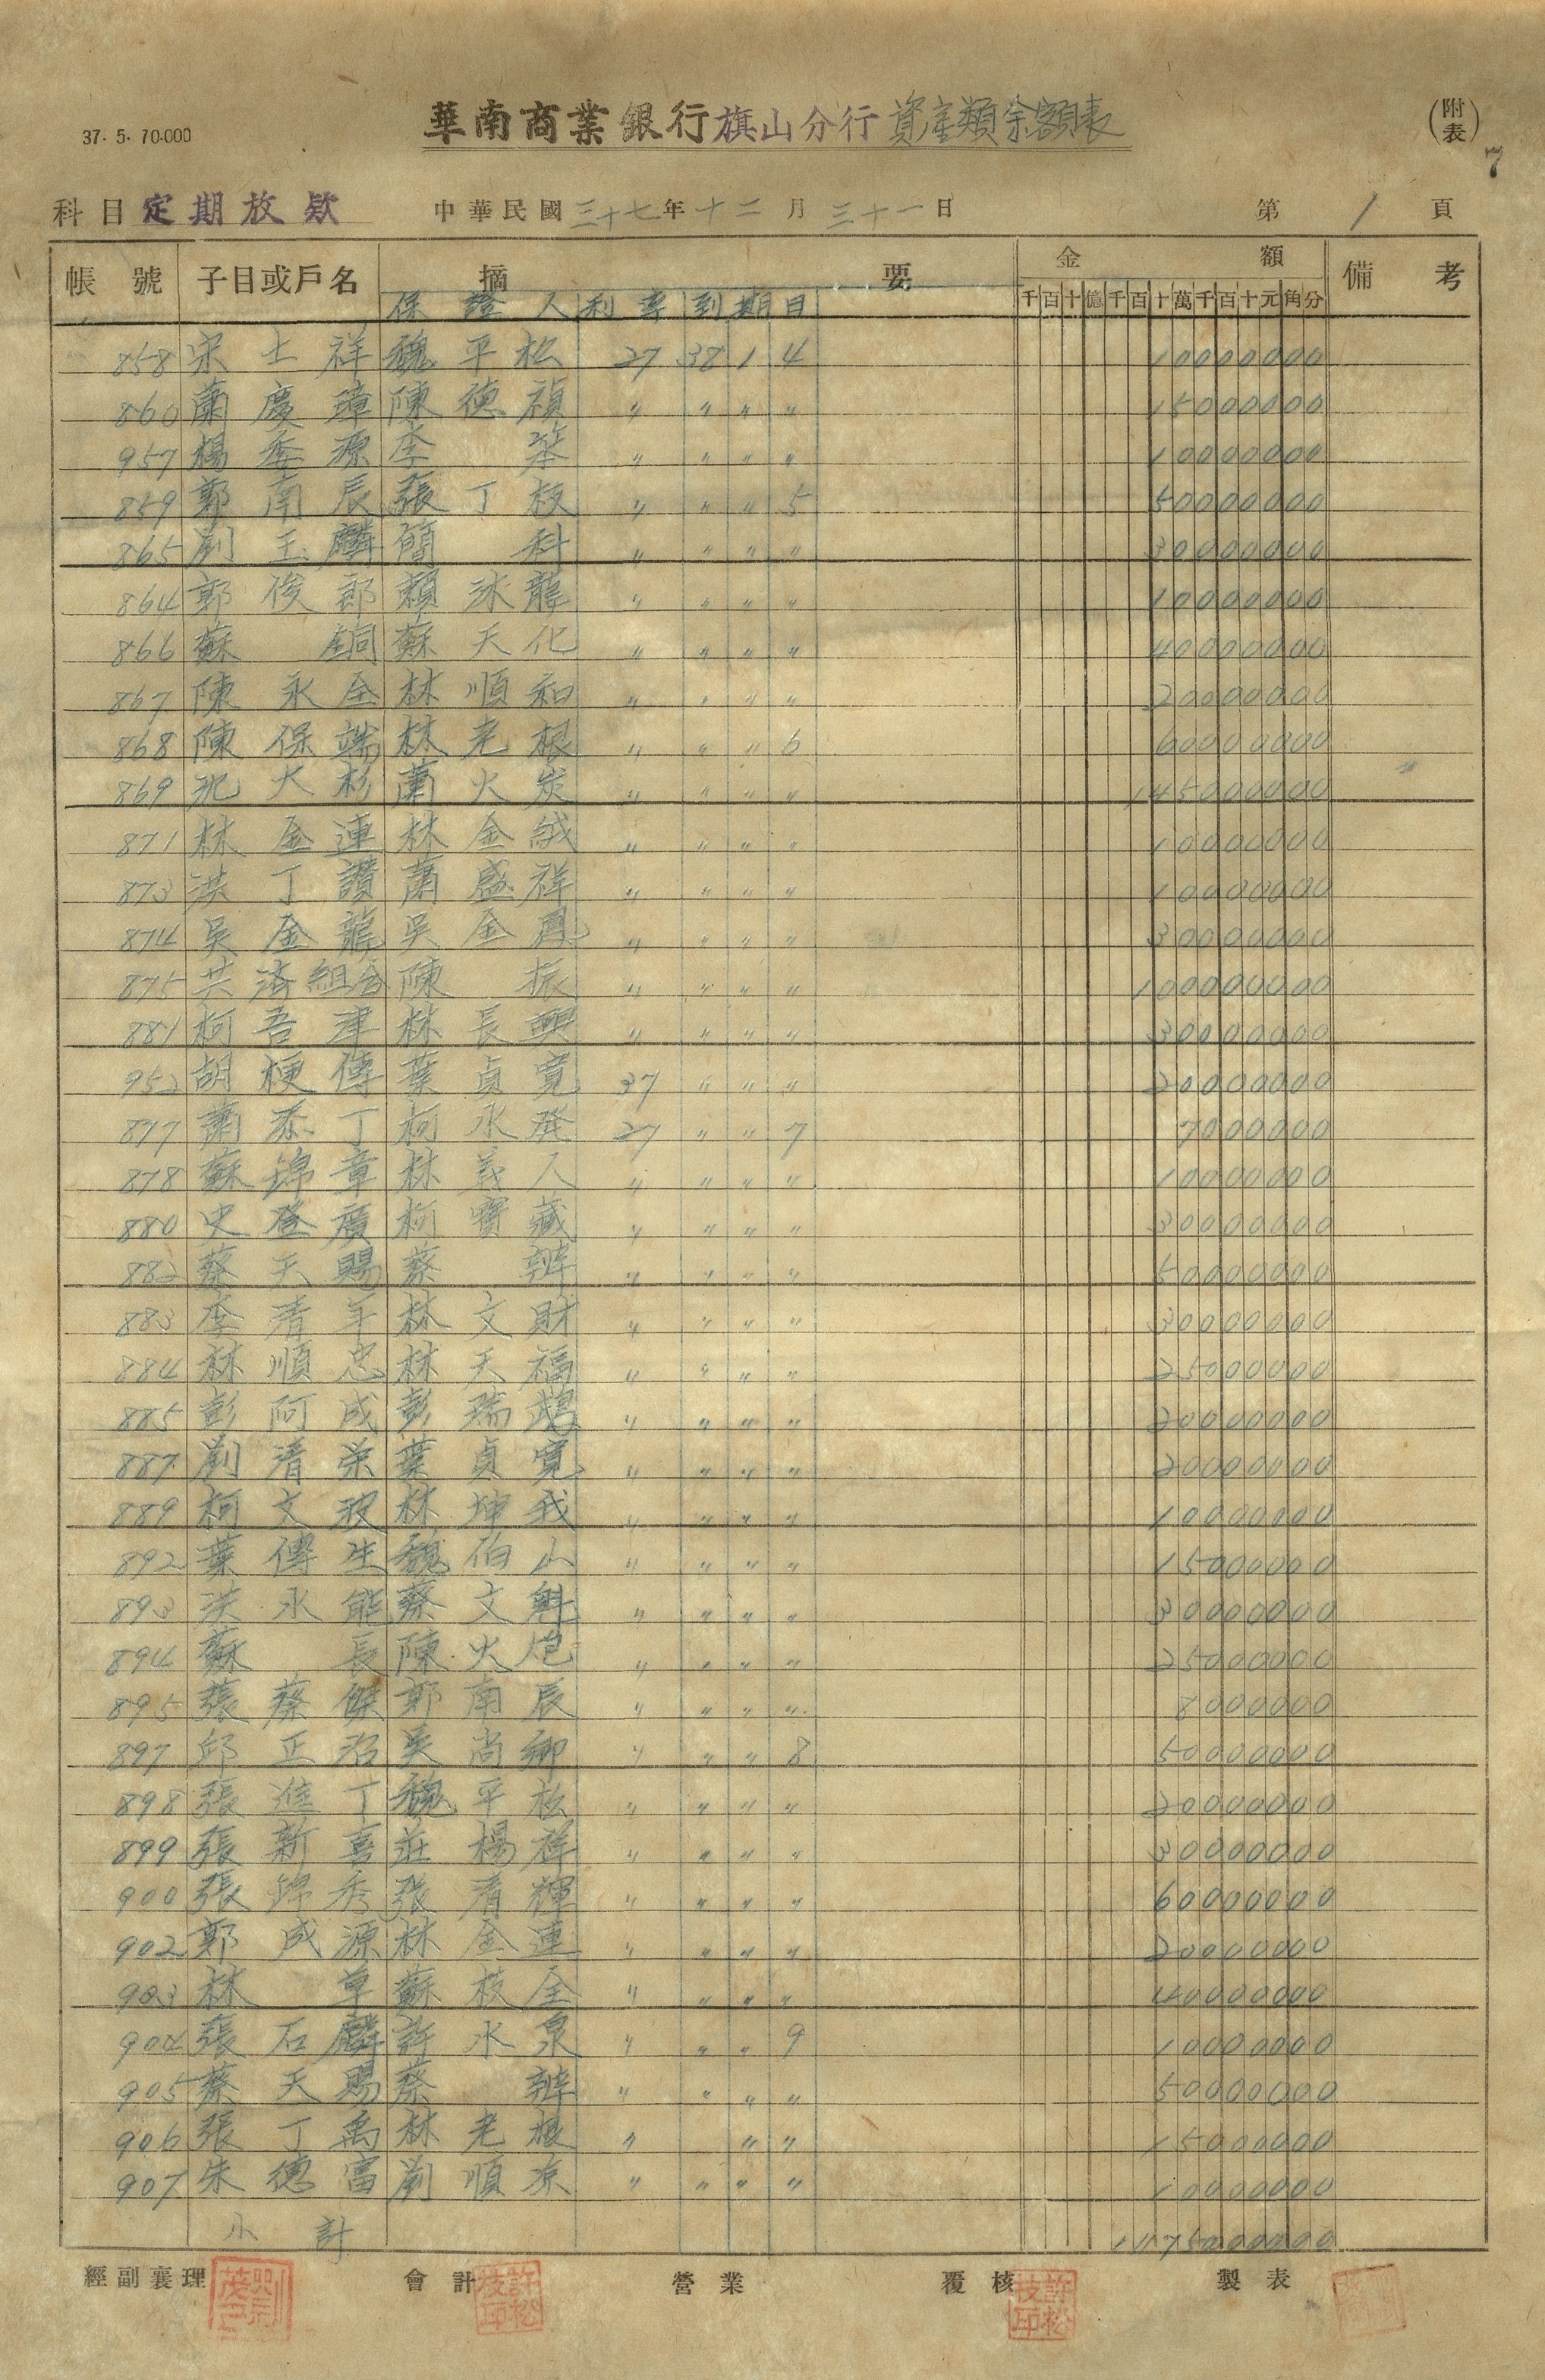 37. 5. 70.000
華南商業銀行旗山分行資產類余額表
(附表)
7
科目 定期放欵 中華民國三十七年十二月三十一日 第 1 頁
帳號 子目或戶名 摘要 金額 備考
保證人 利率 到期日 千百十億千百十萬千百十元角分
858 宋士祥 魏平松 27 38 1 4 10000000
860 蕭慶璋 陳德禎 〃 〃 〃 〃 15000000
957 楊季源 李 〃 〃 〃 〃 10000000
859 郭南辰 張丁枝 〃 〃 〃 5 50000000
865 劉玉麟 簡科 〃 〃 〃 〃 30000000
864 郭俊郎 賴冰龍 〃 〃 〃 〃 10000000
866 蘇銅 蘇天化 〃 〃 〃 〃 40000000
867 陳永全 林順和 〃 〃 〃 〃 20000000
868 陳保端 林老根 〃 〃 〃 6 60000000
869 大杉 蕭火炭 〃 〃 〃 〃 145000000
871 林金連 林金絨 〃 〃 〃 〃 10000000
873 洪丁讚 蕭盛祥 〃 〃 〃 〃 10000000
874 吳金龍 吳金鳳 〃 〃 〃 〃 30000000
875 共濟組合 陳振 〃 〃 〃 〃 100000000
881 柯吾津 林長興 〃 〃 〃 〃 30000000
952 胡梗傳 葉貞寬 37 〃 〃 〃 20000000
877 蕭添丁 柯水發 27 〃 〃 7 7000000
878 蘇錦章 林義人 〃 〃 〃 〃 10000000
880 史登廣 柯寶藏 〃 〃 〃 〃 30000000
882 蔡天賜 蔡辦 〃 〃 〃 〃 50000000
883 李清年 林文財 〃 〃 〃 〃 30000000
884 林順忠 林天福 〃 〃 〃 〃 25000000
885 彭阿成 彭瑞鵡 〃 〃 〃 〃 20000000
887 劉清榮 葉貞寬 〃 〃 〃 〃 20000000
889 柯文玻 林坤我 〃 〃 〃 〃 10000000
892 葉傳生 魏伯山 〃 〃 〃 〃 15000000
893 洪永能 蔡文魁 〃 〃 〃 〃 30000000
894 蘇長 陳火炮 〃 〃 〃 〃 25000000
895 張蔡傑 郭南辰 〃 〃 〃 〃 8000000
897 邱正治 吳尚卿 〃 〃 〃 8 50000000
898 張進丁 魏平松 〃 〃 〃 〃 20000000
899 張新喜 莊楊祥 〃 〃 〃 〃 30000000
900 張錦秀 張清輝 〃 〃 〃 〃 60000000
902 郭成源 林金連 〃 〃 〃 〃 20000000
903 林草 蘇枝全 〃 〃 〃 〃 40000000
904 張石麟 許水泉 〃 〃 〃 9 10000000
905 蔡天賜 蔡辦 〃 〃 〃 〃 50000000
906 張丁禹 林老根 〃 〃 〃 15000000
907 朱德富 劉順涼 〃 〃 〃 〃 10000000
小計 1175000000
經副襄理 會計 許松枝印 營業 覆核 許松枝印 製表